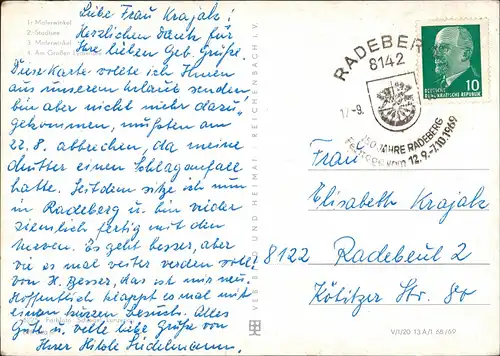 1: Malerwinkel
2: Stadtsee
3: Malerwinkel
4: Am Großen
Liebe Frau Krajak!
Herzlichen Dank für
Ihre lieben Geb. Grüße.
Diese Karte wollte ich Ihnen
aus unserem Urlaub senden,
bin aber nicht mehr dazu
gekommen, mußten am
22.8. abbrechen, da meine
Mutter einen Schlaganfall
hatte. Seitdem sitze ich nun
in Radeberg u. bin wieder
ziemlich fertig mit den
Nerven. Es geht besser, aber
wie es mal weiter werden soll
von H. Besser, das ist mir neu.
Hoffentlich klappt es mal mit
einem kurzen Besuch. Alles
Gute u. viele liebe Grüße von
Ihrer
VEB BILD UND HEIMAT REICHENBACH I. V.
RADEBERG
8142
17.-9.
750 JAHRE RADEBERG
12.9.-7.10.1969
DEUTSCHE
DEMOKRATISCHE REPUBLIK
10
Frau
Elisabeth Krajak
8122 Radebeul 2
Kötitzer Str. 80
V/1/20 13 A/1 68/69